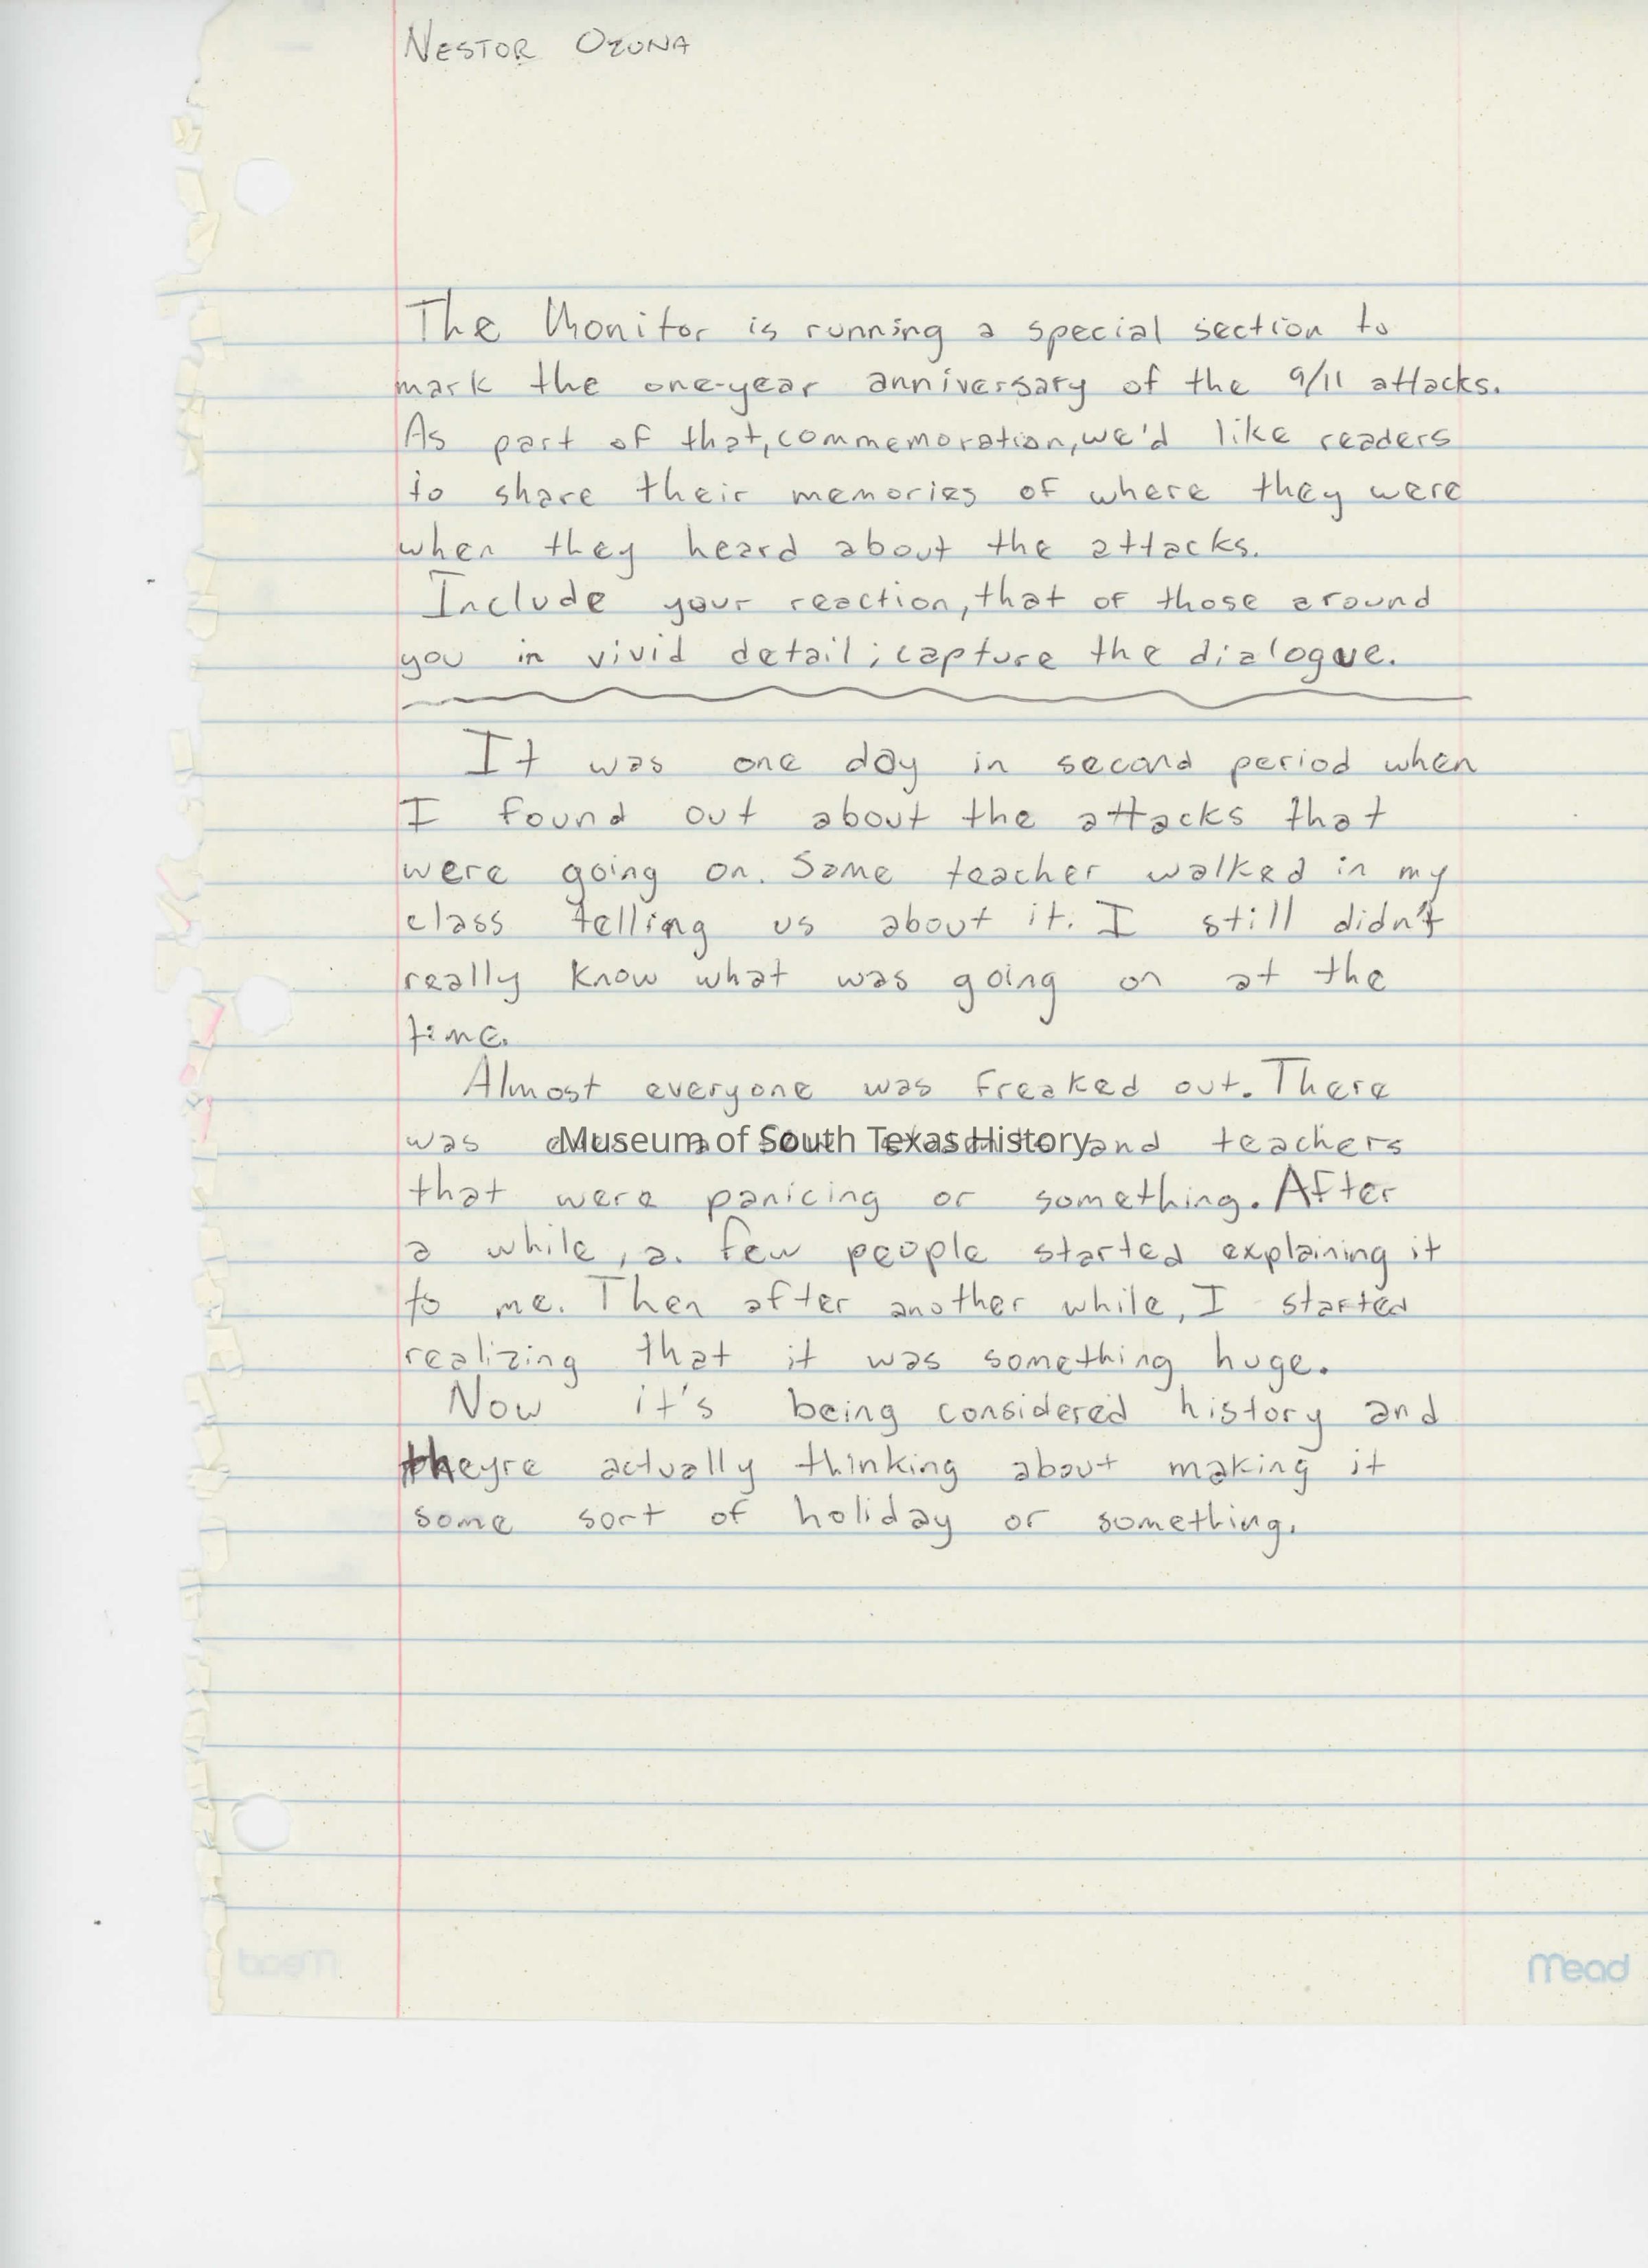 NESTOR OZUNA
The Monitor is running a special section to
mark the one-year anniversary of the 9/11 attacks.
As part of that, commemoration, we'd like readers
to share their memories of where they were
when they heard about the attacks.
Include your reaction, that of those around
you in vivid detail; capture the dialogue.
It was one day in second period when
I found out about the attacks that
were going on. Some teacher walked in my
class telling us about it. I still didn't
really know what was going on at the
time.
Almost everyone was freaked out. There
was and teachers
Museum of South Texas History
that were panicing or something. After
a while, a few people started explaining it
to me. Then after another while, I started
realizing that it was something huge.
Now it's being considered history and
theyre actually thinking about making it
some sort of holiday or something.
Mead